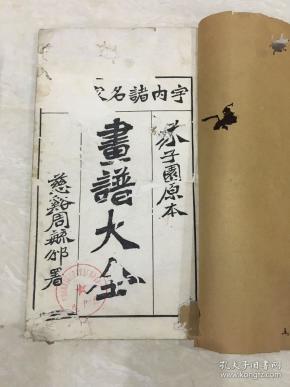 宇內諸名家
芥子園原本
畫譜大全
慈谿周毓邠署
孔夫子旧书网